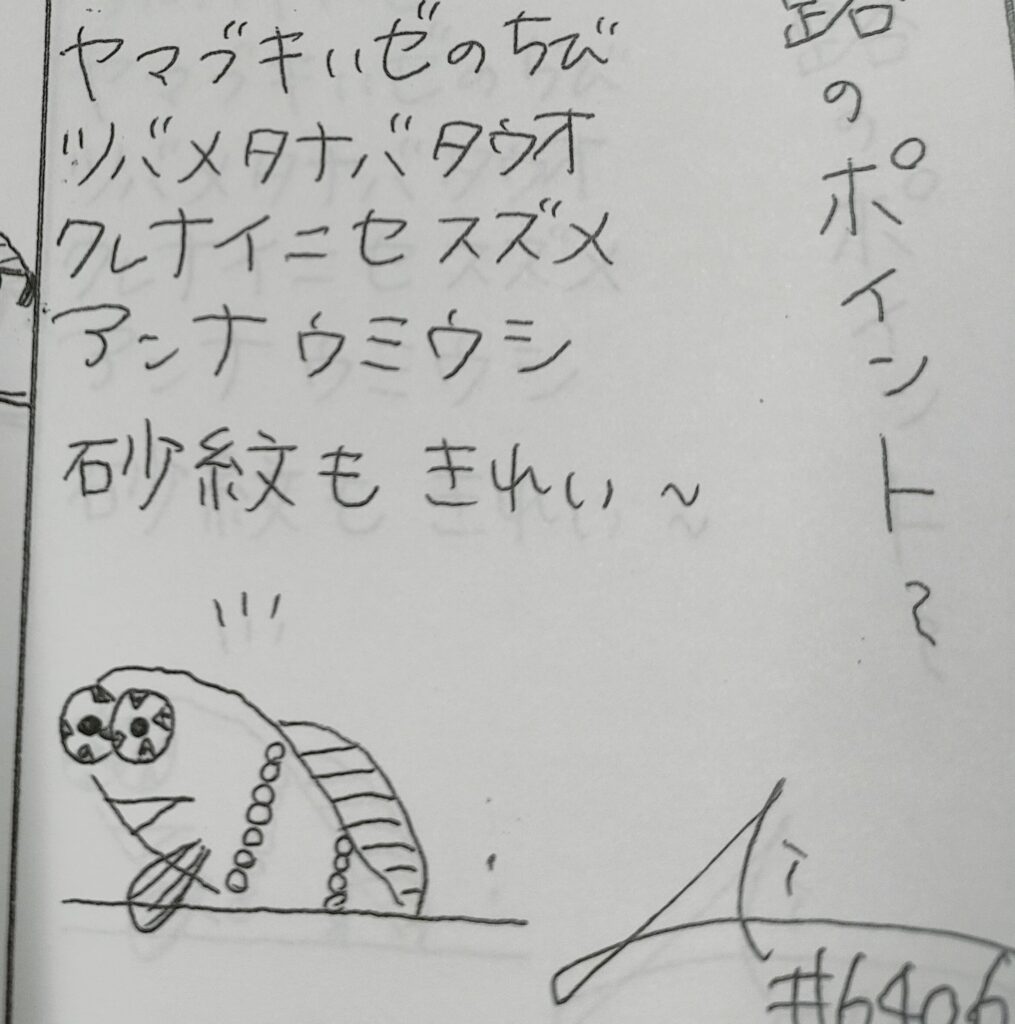 ヤマブキハゼのちび
ツバメタナバタウオ
クレナイニセスズメ
アンナウミウシ
砂紋もきれい〜
のポイント〜
#6406